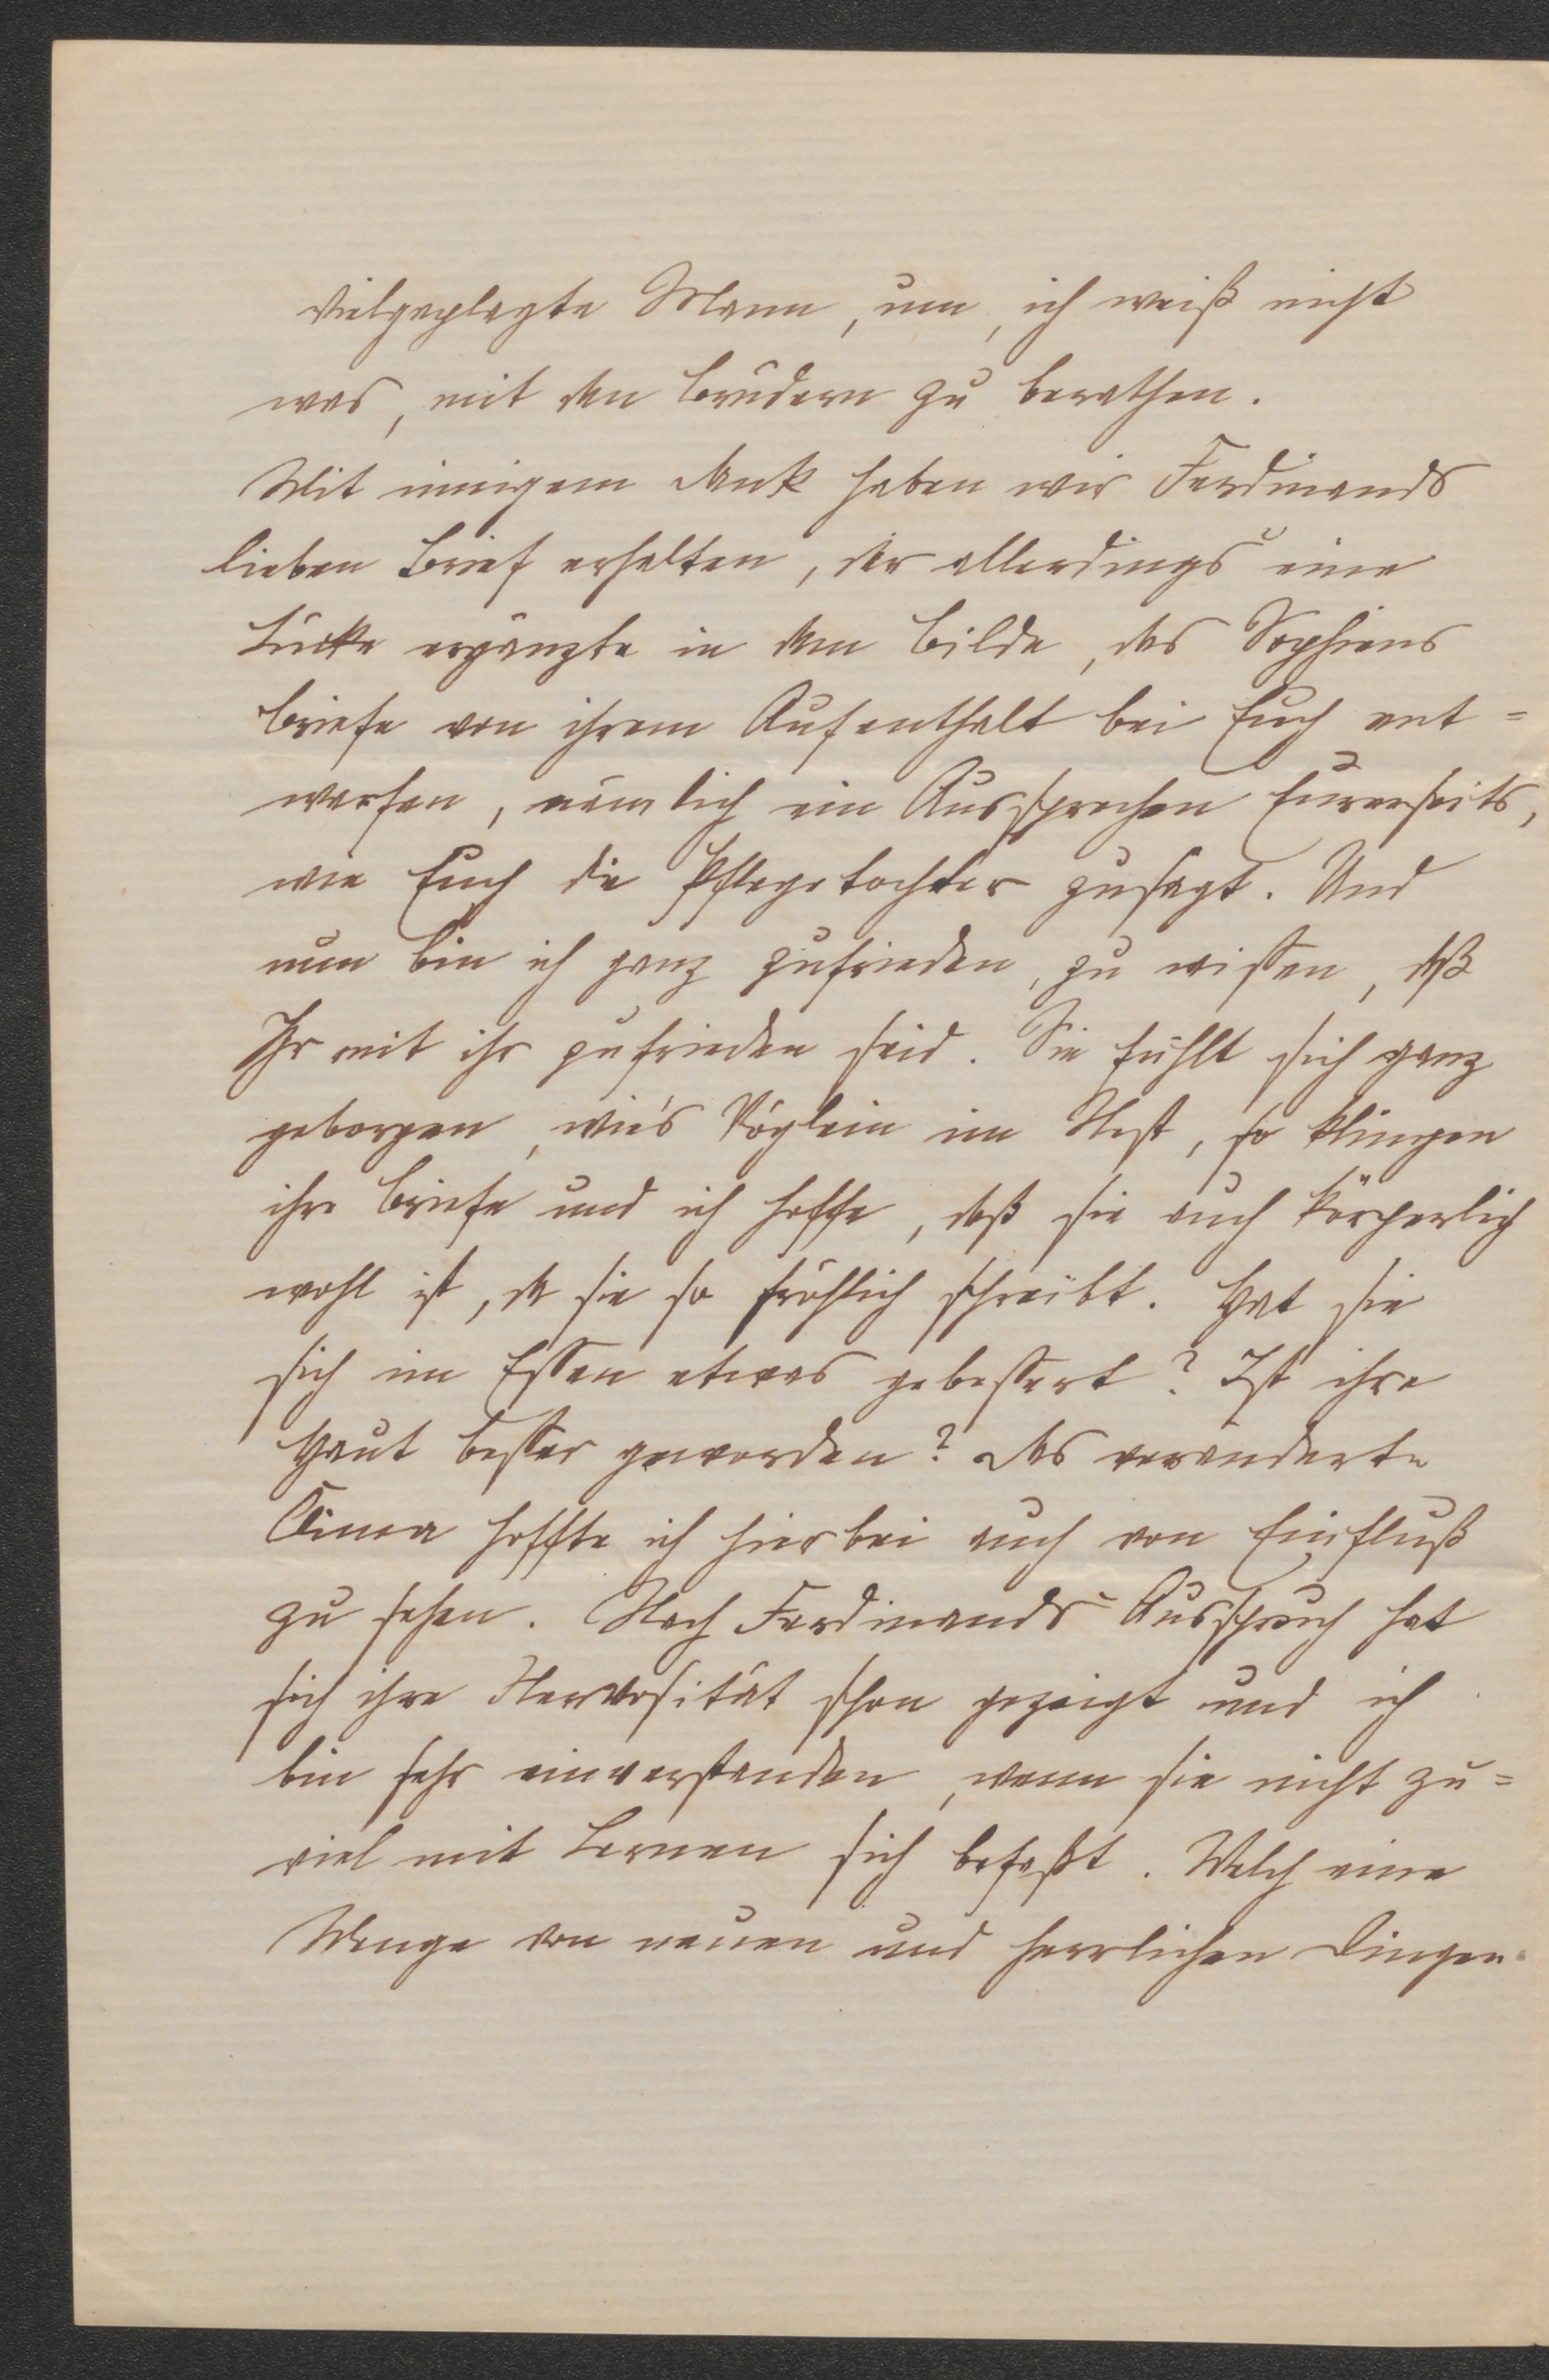 vielgeplagte Mann, um, ich weiß nicht
was, mit den Brüdern zu berathen.
Mit innigem Dank haben wir Ferdinands
lieben Brief erhalten, der allerdings eine
Lücke ergänzte in dem Bilde, das Sophiens
Briefe von ihrem Aufenthalt bei Euch ent=
werfen, nämlich ein Aussprechen Eurerseits,
wie Euch die Pflegetochter zusagt. Und
nun bin ich ganz zufrieden, zu wissen, daß
Ihr mit ihr zufrieden seid. Sie fühlt sich ganz
geborgen, wie's Vöglein im Nest, so klingen
ihre Briefe und ich hoffe, daß sie auch körperlich
wohl ist, da sie so fröhlich schreibt. Hat sie
sich im Essen etwas gebessert? Ist ihre
Haut besser geworden? Das veränderte
Clima hoffte ich hierbei auch von Einfluß
zu sehen. Nach Ferdinands Ausspruch hat
sich ihre Nervosität schon gezeigt und ich
bin sehr einverstanden, wenn sie nicht zu=
viel mit Lernen sich befaßt. Welch eine
Menge von neuen und herrlichen Dingen